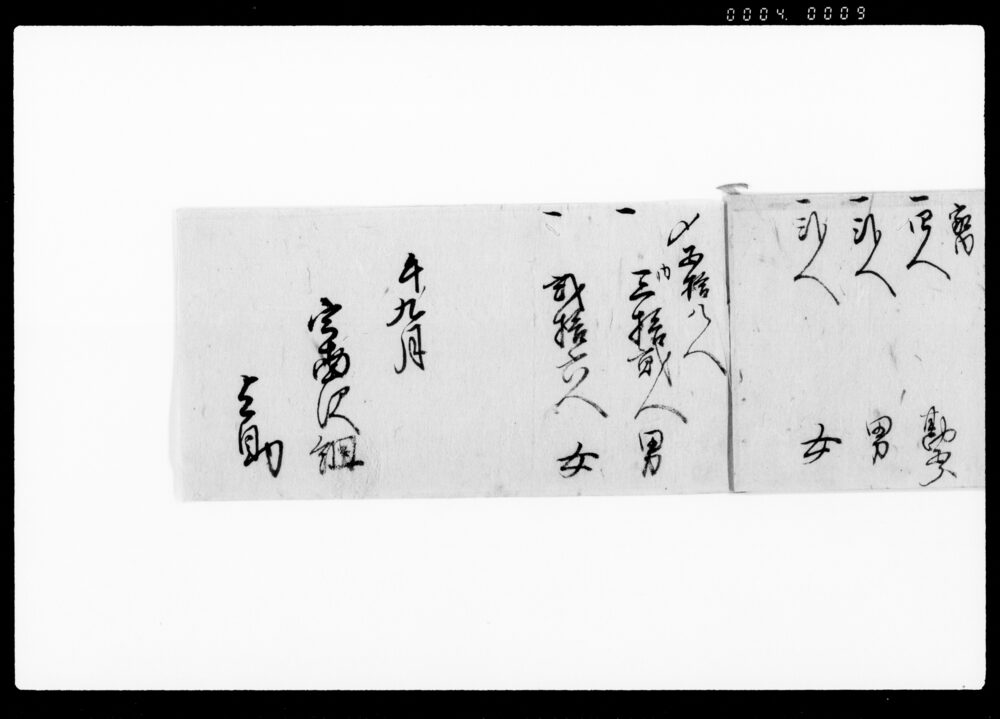 0004. 0009
一四人
一弐人 男
一弐人 女
〆五拾八人
内
一 三拾弐人 男
一 弐拾六人 女
午九月
宮南沢組
与助